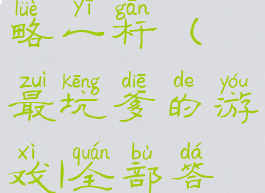 lüè yī gān
略一杆（
zuì kēng diē de yóu
最坑爹的游
xì quán bù dá
戏|全部答